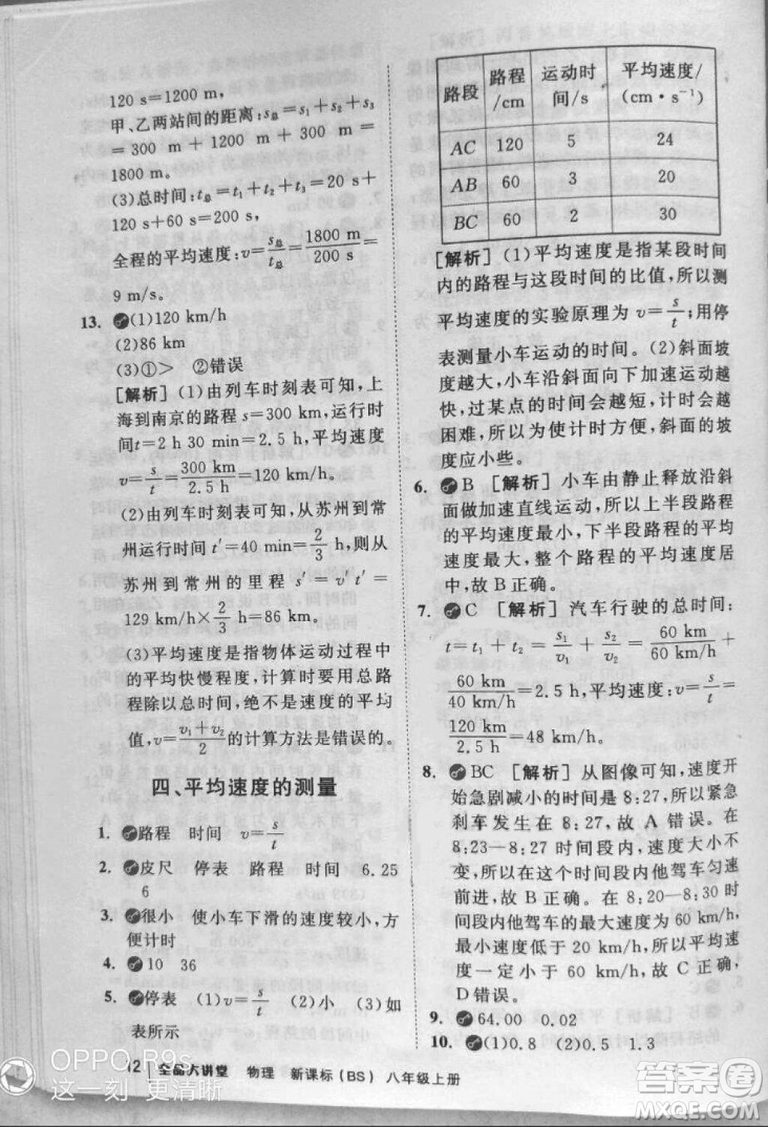 120 s=1200 m.
甲、乙两站间的距离:s总=s₁+s₂+s₃
=300 m+1200 m+300 m=
1800 m.
(3)总时间:t总=t₁+t₂+t₃=20 s+
120 s+60 s=200 s,
全程的平均速度:v=s总/t总=1800 m/200 s=
9 m/s。
13. (1)120 km/h
(2)86 km
(3)①> ②错误
[解析](1)由列车时刻表可知,上
海到南京的路程 s=300 km,运行时
间t=2 h 30 min=2.5 h,平均速度
v=s/t=300 km/2.5 h=120 km/h.
(2)由列车时刻表可知,从苏州到常
州运行时间 t′=40 min=2/3 h,则从
苏州到常州的里程 s′=v′t′=
129 km/h×2/3 h=86 km.
(3)平均速度是指物体运动过程中
的平均快慢程度,计算时要用总路
程除以总时间,绝不是速度的平均
值,v=(v₁+v₂)/2的计算方法是错误的。
四、平均速度的测量
1. 路程 时间 v=s/t
2. 皮尺 停表 路程 时间 6.25
6
3. 很小 使小车下滑的速度较小,方
便计时
4. 10 36
5. 停表 (1)v=s/t (2)小 (3)如
表所示
路段 路程/cm 运动时间/s 平均速度/(cm·s⁻¹)
AC 120 5 24
AB 60 3 20
BC 60 2 30
[解析](1)平均速度是指某段时间
内的路程与这段时间的比值,所以测
平均速度的实验原理为 v=s/t;用停
表测量小车运动的时间。(2)斜面坡
度越大,小车沿斜面向下加速运动越
快,过某点的时间会越短,计时会越
困难,所以为使计时方便,斜面的坡
度应小些。
6. B [解析]小车由静止释放沿斜
面做加速直线运动,所以上半段路程
的平均速度最小,下半段路程的平均
速度最大,整个路程的平均速度居
中。故 B 正确。
7. C [解析]汽车行驶的总时间:
t=t₁+t₂=s₁/v₁+s₂/v₂=60 km/60 km/h+
60 km/40 km/h=2.5 h,平均速度:v=s/t=
120 km/2.5 h=48 km/h。
8. BC [解析]从图像可知,速度开
始急剧减小的时间是 8:27,所以紧急
刹车发生在 8:27,故 A 错误。在
8:23—8:27 时间段内速度大小不
变,所以在这个时间段内他驾车匀速
前进,故 B 正确。在 8:20—8:30 时
间段内他驾车的最大速度是60 km/h,
最小速度不一定是 0,故 C 正确,
D错误。
9. 64.00 0.02
10. (1)0.8 (2)0.5 1.3
12 全品大讲堂 物理 新课标(BS) 八年级上册
OPPO R9s
这一刻 更清晰